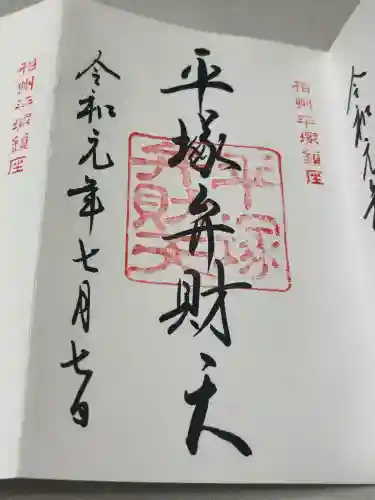 相州平塚鎮座
平塚弁財天
令和元年七月七日
相州平塚鎮座
令和元年